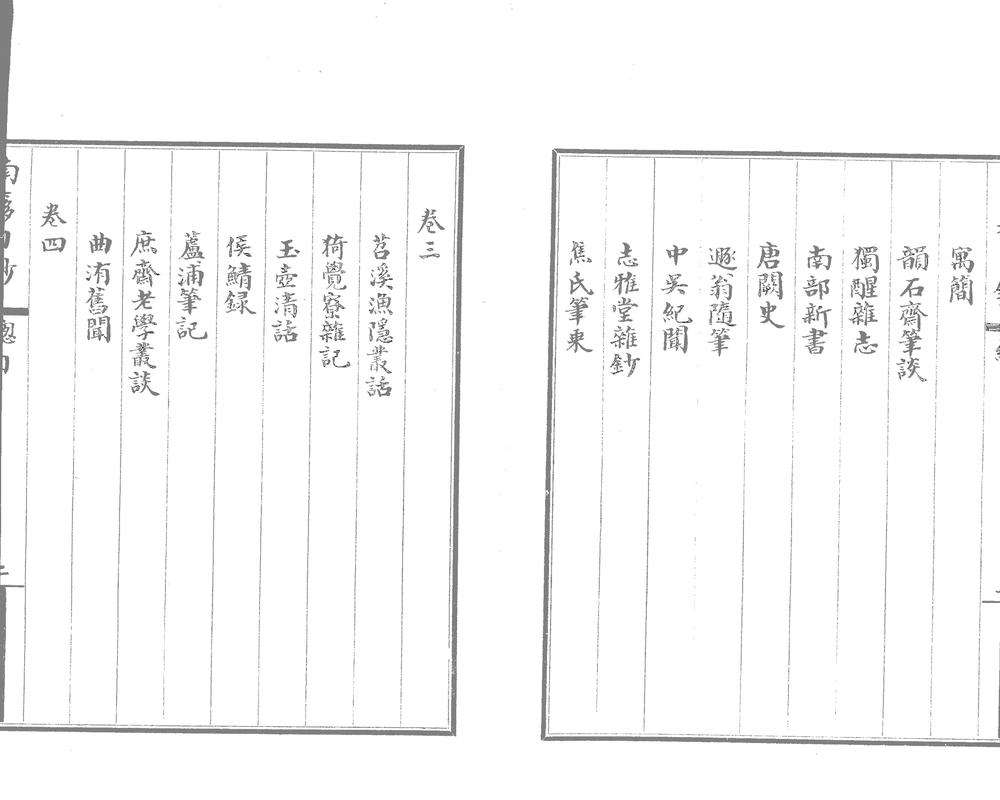 寓簡
韻石齋筆談
獨醒雜志
南部新書
唐闕史
遯翁隨筆
中吳紀聞
志雅堂雜鈔
焦氏筆乗
卷三
苕溪漁隱叢話
猗覺寮雜記
玉壺清話
侯鯖録
蘆浦筆記
庶齋老學叢談
曲洧舊聞
卷四